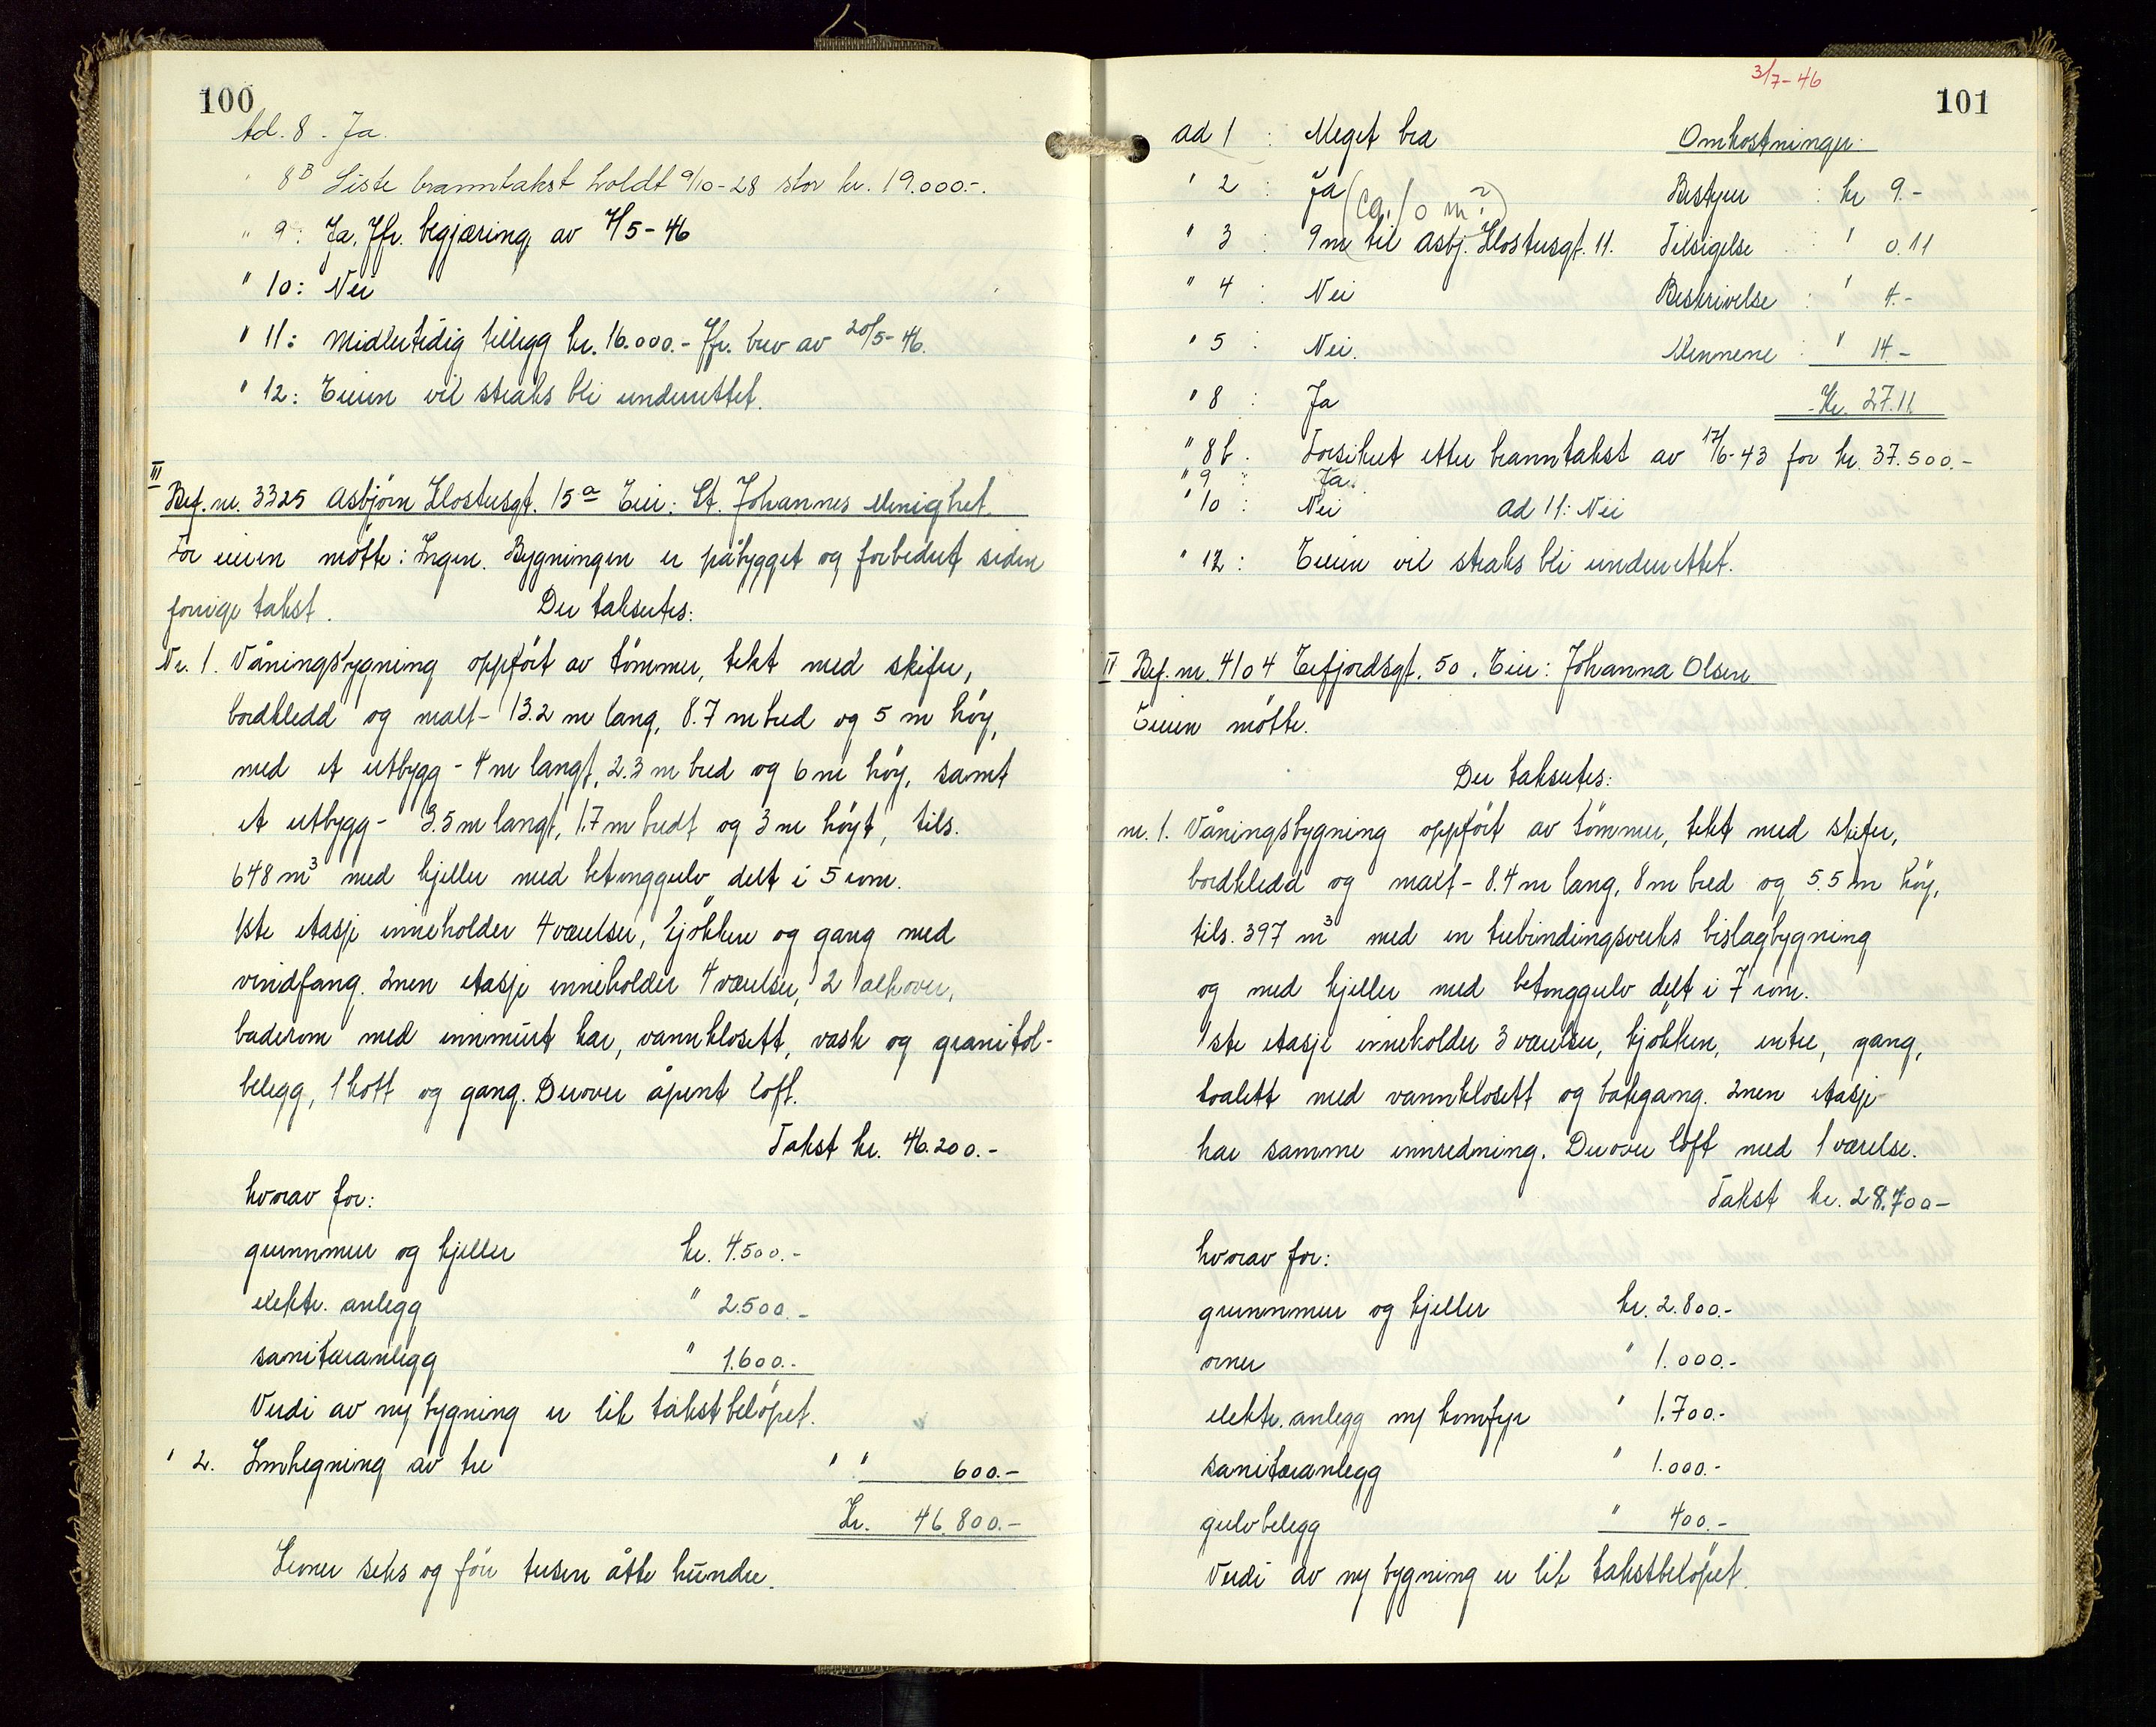 100
Ad. 8. Ja.
" 8B Siste branntakst holdt 9/10-28 stor kr. 19.000.-.
" 9: Ja. Jfr. begjæring av 7/5-46
" 10: Nei
" 11: Midlertidig tillegg kr. 16.000.- Jfr. brev av 20/5-46.
" 12: Eieren vil straks bli underrettet.
III
Bef. nr. 3325 Asbjørn Klostersgt. 15a Eier: St. Johannes Menighet.
For eieren møtte: Ingen. Bygningen er påbygget og forbedret siden
forrige takst. Der takseres:
Nr. 1. Våningsbygning oppført av tømmer, tekt med skifer,
bordkledd og malt - 13.2 m lang, 8.7 m bred og 5 m høy,
med et utbygg - 4 m langt, 2.3 m bred og 6 m høy, samt
et utbygg - 3.5 m langt, 1.7 m bredt og 3 m høyt, tils.
648 m3 med kjeller med betonggulv delt i 5 rom.
1ste etasje inneholder 4 værelser, kjøkken og gang med
vindfang. 2nen etasje inneholder 4 værelser, 2 alkover,
baderom med innmurt kar, vannklosett, vask og granitol-
belegg, 1 kott og gang. Derover åpent loft.
Takst kr. 46.200.-
hvorav for:
grunnmur og kjeller kr. 4.500.-
elektr. anlegg " 2.500.-
sanitæranlegg " 1.600.-
Verdi av ny bygning er lik takstbeløpet.
" 2. Innhegning av tre " " 600.-
Kr. 46.800.-
Kroner seks og førr tusen åtte hundre.
3/7-46
101
ad 1 : Meget bra Omkostninger:
" 2 : Ja (ca. 10 m?) Bestyrer : kr 9.-
" 3 : 9 m til Asbj. Klostersgt. 11. Tilsigelse : " 0.11
" 4 : Nei Beskrivelse : " 4.-
" 5 : Nei. Mennene : " 14.-
" 8 : Ja Kr. 27.11
" 8b. Forsikret etter branntakst av 17/6-43 for kr. 37.500.-
" 9 : Ja.
" 10 : Nei ad 11: Nei
" 12 : Eieren vil straks bli underrettet.
IV Bef. nr. 4104 Eefjordsgt. 50. Eier: Johanna Olsen
Eieren møtte.
Der takseres:
nr. 1. Våningsbygning oppført av tømmer, tekt med skifer,
bordkledd og malt - 8.4 m lang, 8 m bred og 5.5 m høy,
tils. 397 m3 med en trebindingsverks bislagbygning
og med kjeller med betonggulv delt i 7 rom.
1ste etasje inneholder 3 værelser, kjøkken, entre, gang,
toalett med vannklosett og bakgang. 2nen etasje
har samme innredning. Derover loft med 1 værelse.
Takst kr. 28.700-
hvorav for:
grunnmur og kjeller kr. 2.800.-
ovner " 1.000.-
elektr. anlegg ny komfyr " 1.700.-
sanitæranlegg " 1.000.-
gulvbelegg " 400.-
Verdi av ny bygning er lik takstbeløpet.